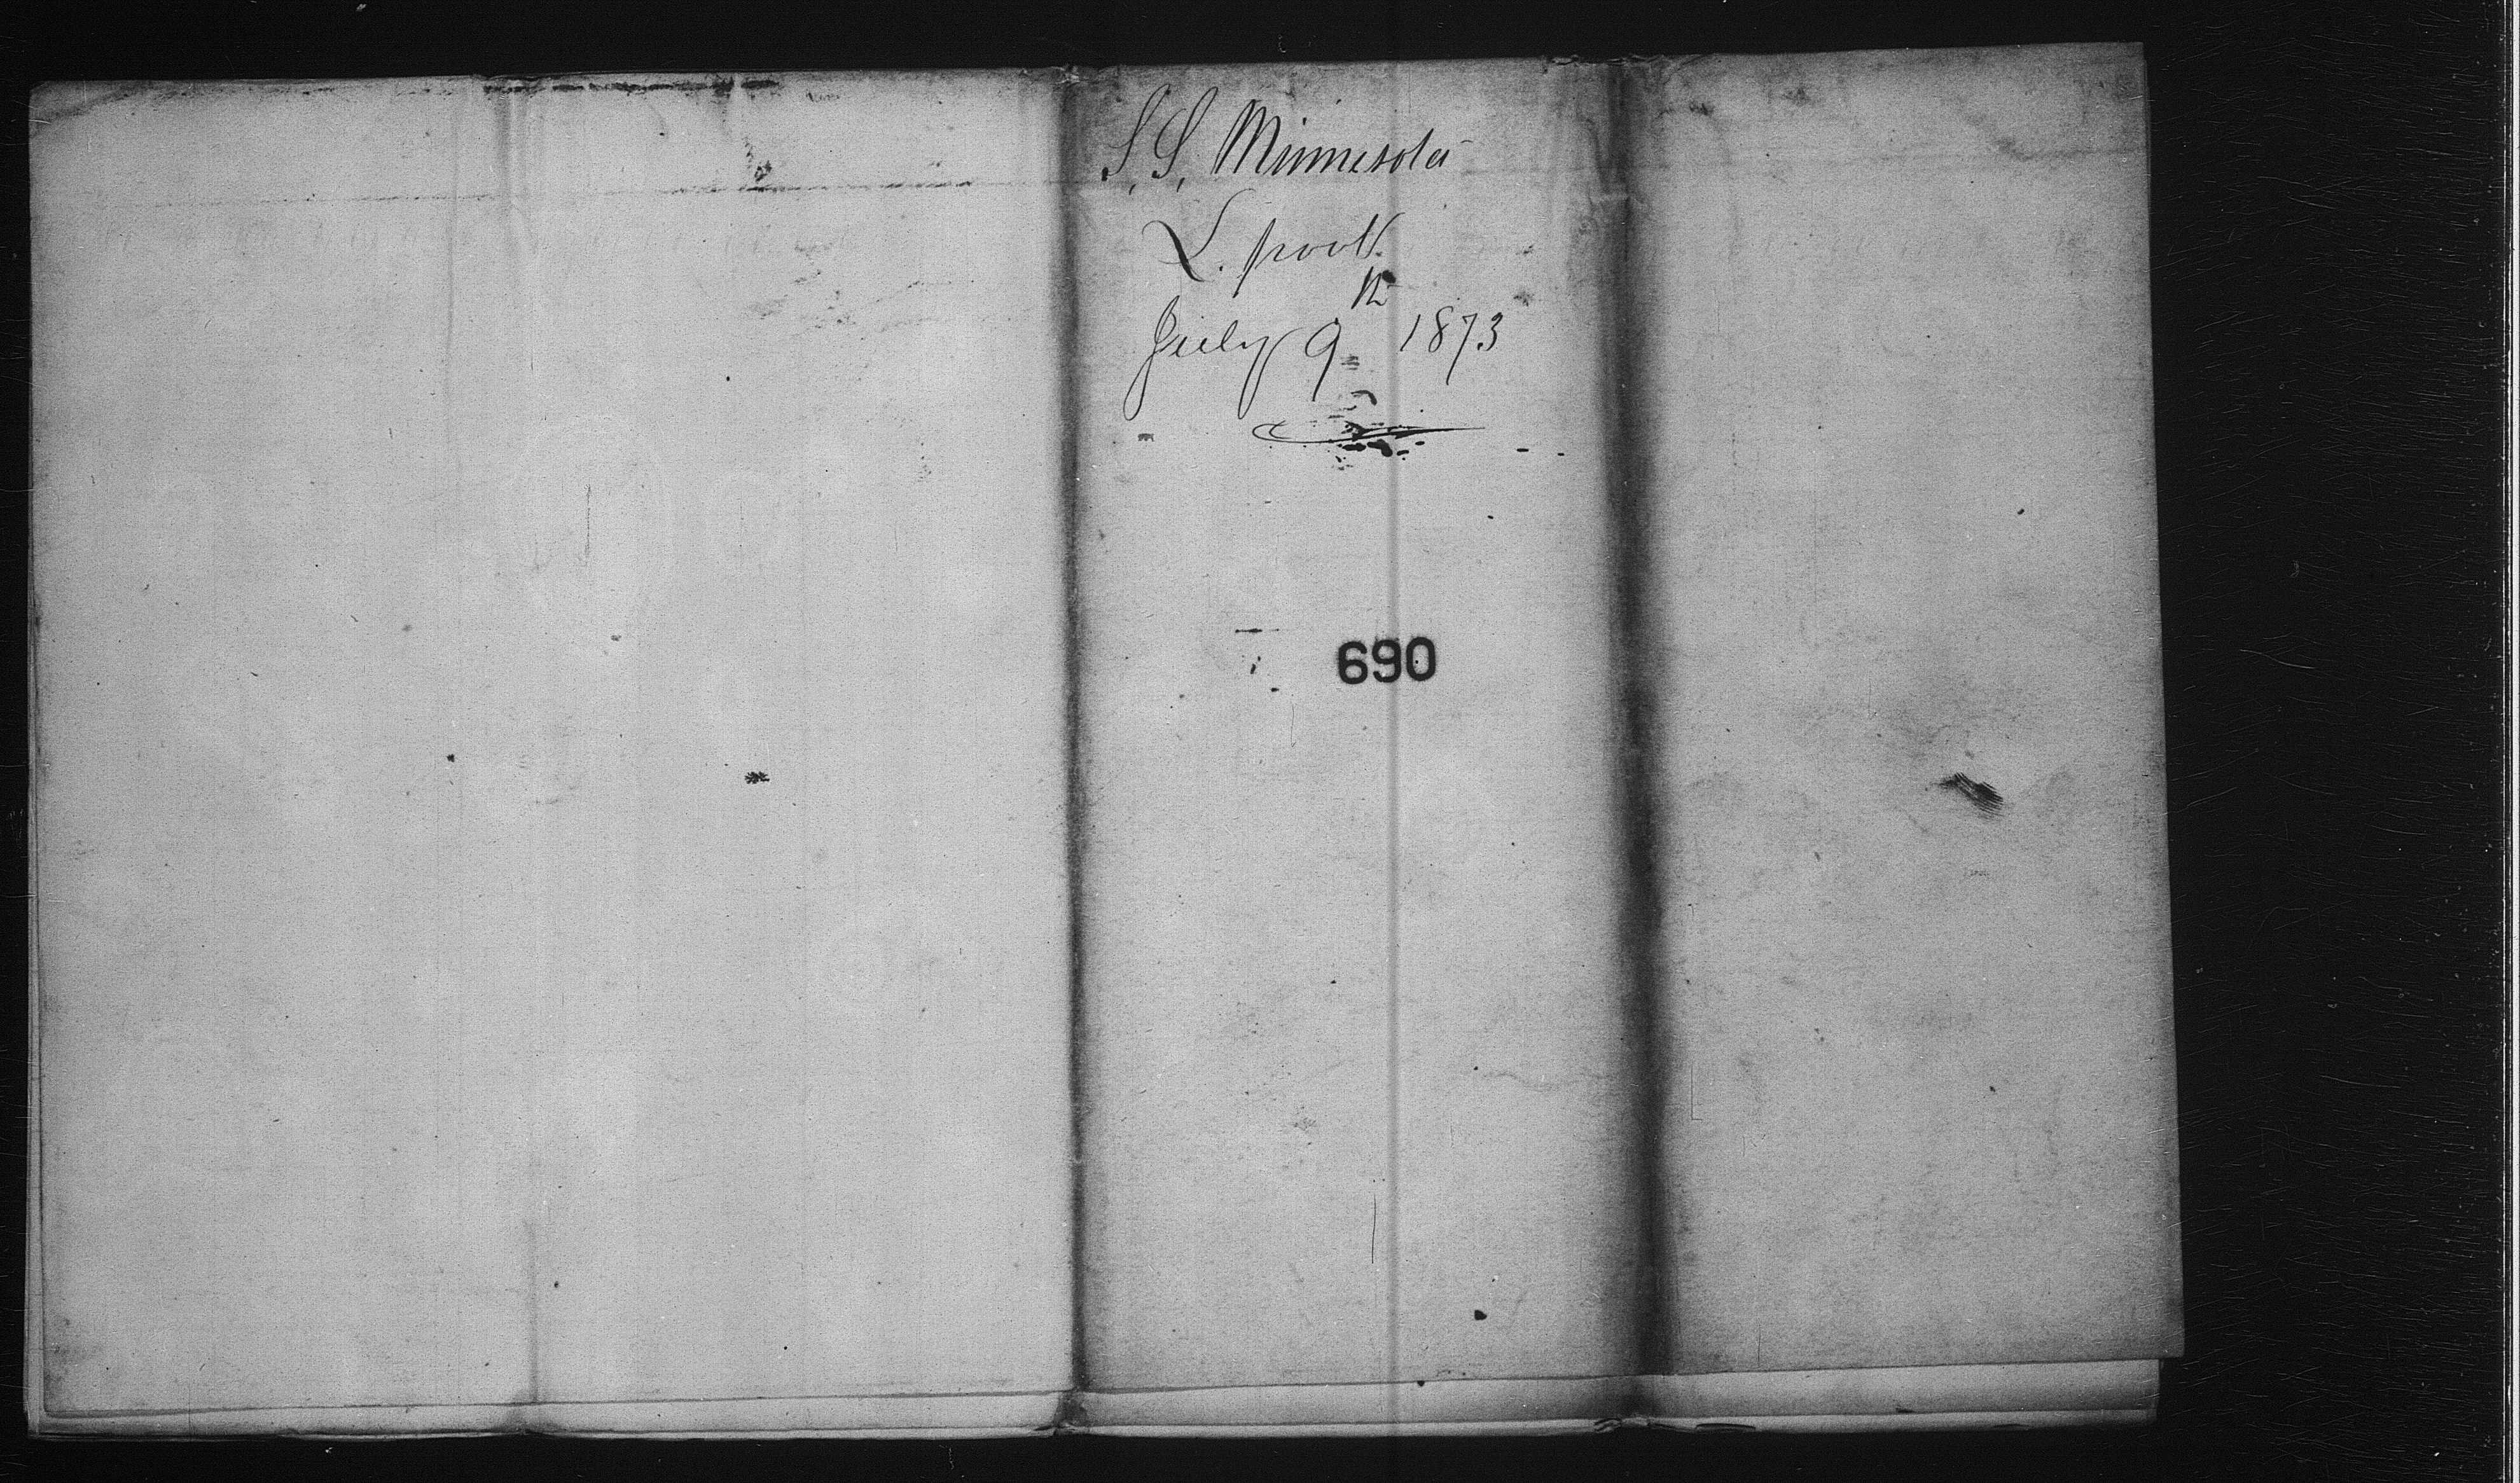 S, S, Minnesota
L. pool
July 9th 1873
690